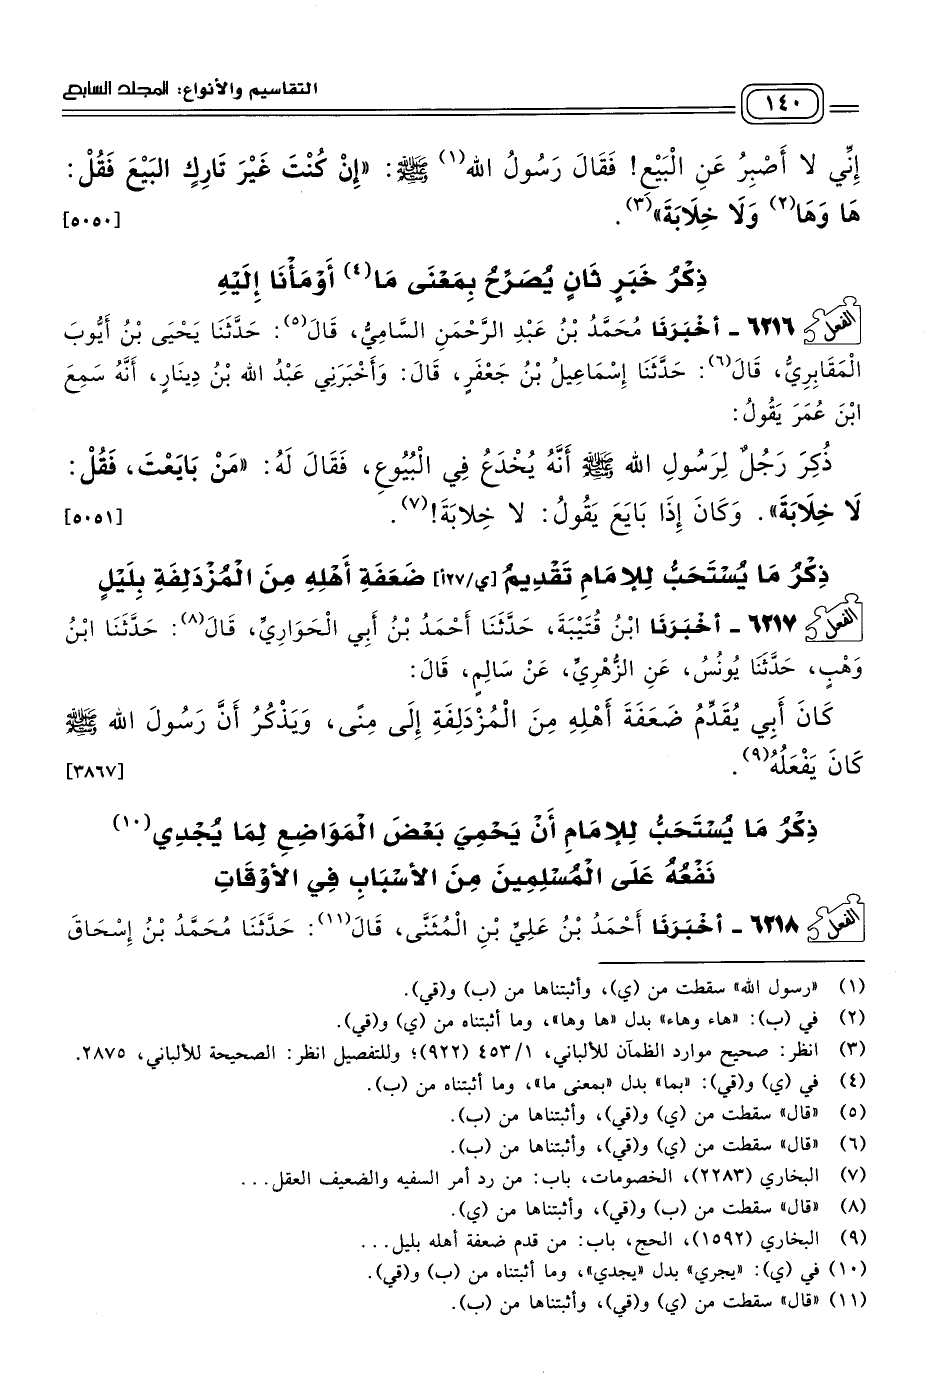 التقاسيم والأنواع: المجلد السابع
١٤٠
إِنِّي لا أَصْبِرُ عَنِ الْبَيْعِ! فَقَالَ رَسُولُ الله(١) ﷺ: «إِنْ كُنْتَ غَيْرَ تَارِكٍ البَيْعَ فَقُلْ:
هَا وَهَا(٢) وَلَا خِلَابَةَ»(٣). [٥٠٥٠]
ذِكْرُ خَبَرٍ ثَانٍ يُصَرِّحُ بِمَعْنَى مَا(٤) أَوْمَأْنَا إِلَيْهِ
الفعل
٦٢١٦ - أخْبَرَنَا مُحَمَّدُ بْنُ عَبْدِ الرَّحْمَنِ السَّامِيُّ، قَالَ(٥): حَدَّثَنَا يَحْيَى بْنُ أَيُّوبَ
الْمَقَابِرِيُّ، قَالَ(٦): حَدَّثَنَا إِسْمَاعِيلُ بْنُ جَعْفَرٍ، قَالَ: وَأَخْبَرَنِي عَبْدُ الله بْنُ دِينَارٍ، أَنَّهُ سَمِعَ
ابْنَ عُمَرَ يَقُولُ:
ذُكِرَ رَجُلٌ لِرَسُولِ الله ﷺ أَنَّهُ يُخْدَعُ فِي الْبُيُوعِ، فَقَالَ لَهُ: «مَنْ بَايَعْتَ، فَقُلْ:
لَا خِلَابَةَ». وَكَانَ إِذَا بَايَعَ يَقُولُ: لا خِلابَةَ!(٧). [٥٠٥١]
ذِكْرُ مَا يُسْتَحَبُّ لِلإمَامِ تَقْدِيمُ [ي/١٢٧] ضَعَفَةِ أَهْلِهِ مِنَ الْمُزْدَلِفَةِ بِلَيْلٍ
الفعل
٦٢١٧ - أخْبَرَنَا ابْنُ قُتَيْبَةَ، حَدَّثَنَا أَحْمَدُ بْنُ أَبِي الْحَوَارِيِّ، قَالَ(٨): حَدَّثَنَا ابْنُ
وَهْبٍ، حَدَّثَنَا يُونُسُ، عَنِ الزُّهْرِيِّ، عَنْ سَالِمٍ، قَالَ:
كَانَ أَبِي يُقَدِّمُ ضَعَفَةَ أَهْلِهِ مِنَ الْمُزْدَلِفَةِ إِلَى مِنًى، وَيَذْكُرُ أَنَّ رَسُولَ الله ﷺ
كَانَ يَفْعَلُهُ(٩). [٣٨٦٧]
ذِكْرُ مَا يُسْتَحَبُّ لِلإمَامِ أَنْ يَحْمِيَ بَعْضَ الْمَوَاضِعِ لِمَا يُجْدِي(١٠)
نَفْعُهُ عَلَى الْمُسْلِمِينَ مِنَ الأسْبَابِ فِي الأوْقَاتِ
الفعل
٦٢١٨ - أخْبَرَنَا أَحْمَدُ بْنُ عَلِيِّ بْنِ الْمُثَنَّى، قَالَ(١١): حَدَّثَنَا مُحَمَّدُ بْنُ إِسْحَاقَ
(١) «رسول الله» سقطت من (ي)، وأثبتناها من (ب) و(قي).
(٢) في (ب): «هاء وهاء» بدل «ها وها»، وما أثبتناه من (ي) و(قي).
(٣) انظر: صحيح موارد الظمآن للألباني، ١/ ٤٥٣ (٩٢٢)؛ وللتفصيل انظر: الصحيحة للألباني، ٢٨٧٥.
(٤) في (ي) و(قي): «بما» بدل «بمعنى ما»، وما أثبتناه من (ب).
(٥) «قال» سقطت من (ي) و(قي)، وأثبتناها من (ب).
(٦) «قال» سقطت من (ي) و(قي)، وأثبتناها من (ب).
(٧) البخاري (٢٢٨٣)، الخصومات، باب: من رد أمر السفيه والضعيف العقل...
(٨) «قال» سقطت من (ب) و(قي)، وأثبتناها من (ي).
(٩) البخاري (١٥٩٢)، الحج، باب: من قدم ضعفة أهله بليل...
(١٠) في (ي): «يجري» بدل «يجدي»، وما أثبتناه من (ب) و(قي).
(١١) «قال» سقطت من (ي) و(قي)، وأثبتناها من (ب).